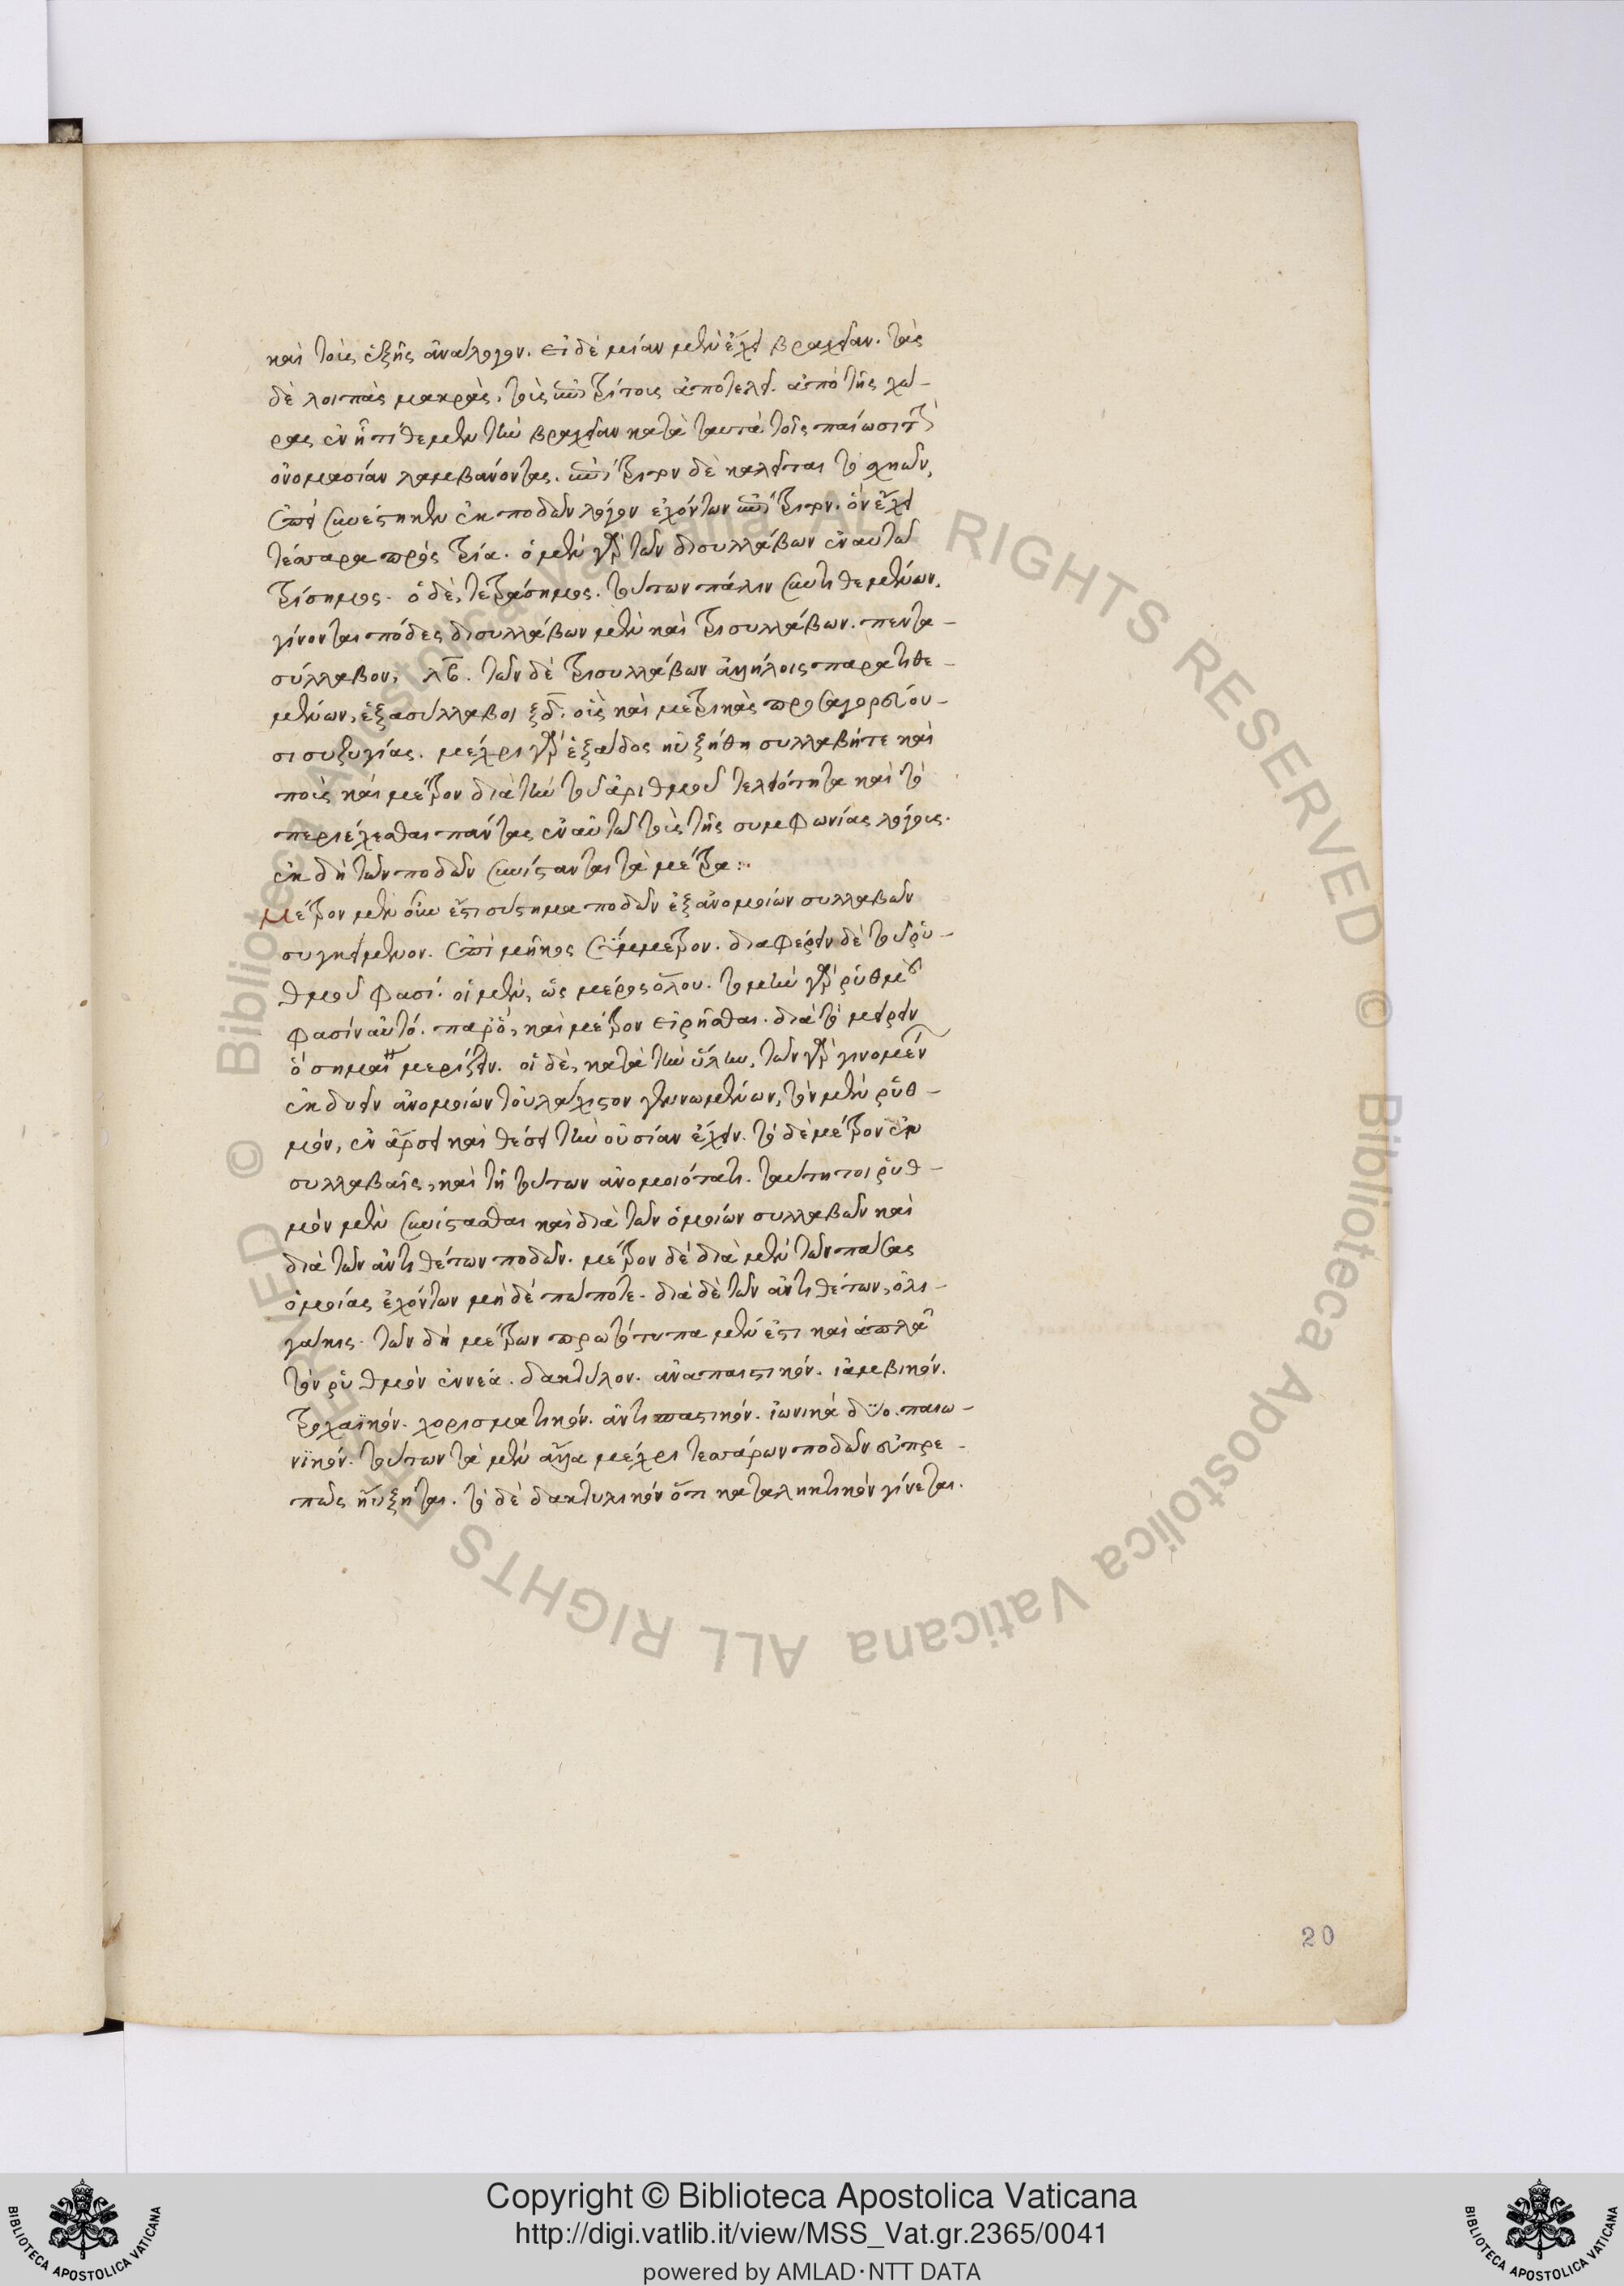 καὶ τοῖς ἑξῆς ἀναλόγον. εἰ δὲ μίαν μὲν ἔχει βραχεῖαν. τὰς
δὲ λοιπὰς μακρὰς, τοῖς ἐπιτρίτοις ἀποτελεῖ. ἀπὸ τῆς χώ-
ρας ἐν ᾗ τίθεμεν τὴν βραχεῖαν κατὰ ταυτὰ τοῖς παίωσι τὴν
ὀνομασίαν λαμβάνοντας. ἐπίτριτον δὲ καλεῖται τὸ σχῆμα,
ἐπεὶ συνέστηκεν ἐκ ποδῶν λόγον ἐχόντων ἐπίτριτον. ὃν ἔχει
τέσσαρα πρὸς τρία. ὁ μὲν γὰρ τῶν δισυλλάβων ἐν αυτῶ
τρίσημος. ὁ δὲ, τετράσημος. τούτων πάλιν συντιθεμένων,
γίνονται πόδες δισυλλάβων μὲν καὶ τρισυλλάβων. πεντα-
σύλλαβον, λβ. τῶν δὲ τρισυλλάβων ἀλλήλοις παρατιθε-
μένων, ἑξασύλλαβοι ξδ. οἷς καὶ μετρικὰς προσαγορεύου-
σι συζυγίας. μέχρι γὰρ ἑξάδος ηὐξήθη συλλαβή τε καὶ
ποὺς καὶ μέτρον διὰ τὴν τοῦ ἀριθμοῦ τελειότητα καὶ τὸ
περιέχεσθαι πάντας ἐν αὐτῶ τοὺς τῆς συμφωνίας λόγους.
ἐκ δὴ τῶν ποδῶν συνίσταται τὰ μέτρα:
Μέτρον μὲν οὖν ἐστι σύστημα ποδῶν ἐξ ἀνομοίων συλλαβῶν
συγκείμενον. ἐπὶ μῆκος σύμμετρον. διαφέρειν δὲ τοῦ ῥυ-
θμοῦ φασί. οἱ μὲν, ὡς μέρος ὅλου. τομὴν γὰρ ῥυθμοῦ
φασὶν αὐτό. παρὸ, καὶ μέτρον εἰρῆσθαι. διὰ τὸ μείρειν
ὃ σημαίνει μερίζειν. οἱ δὲ, κατὰ τὴν ὕλην, τῶν γὰρ γινομένων
ἐκ δυεῖν ἀνομοίων τοὐλάχιστον γεννωμένων, τὸν μὲν ῥυθ-
μὸν, ἐν ἄρσει καὶ θέσει τὴν οὐσίαν ἔχειν. τὸ δὲ μέτρον ἐν
συλλαβαῖς, καὶ τῇ τούτων ἀνομοιότητι. ταύτη τοι ῥυθ-
μὸν μὲν συνίστασθαι καὶ διὰ τῶν ὁμοίων συλλαβῶν καὶ
διὰ τῶν ἀντιθέτων ποδῶν. μέτρον δὲ διὰ μὲν τῶν πάσας
ὁμοίας ἐχόντων μὴ δέ πώποτε. διὰ δὲ τῶν ἀντιθέτων, ὀλι-
γάκις. τῶν δὴ μέτρων πρωτότυπα μέν ἐστι καὶ ἁπλᾶ
τὸν ῥυθμὸν ἐννέα. δακτύλον. ἀναπαιστικόν. ἰαμβικόν.
τροχαϊκόν. χορισματικόν. ἀντισπαστικόν. ἰωνικὰ δύο. παιω-
νϊκόν. τούτων τὰ μὲν ἄλλα μέχρι τεσσάρων ποδῶν εὐπρε-
πῶς ηὔξηται. τὸ δὲ δακτυλικὸν ὅτι καταληκτικὸν γίνεται.
20
Copyright © Biblioteca Apostolica Vaticana
http://digi.vatlib.it/view/MSS_Vat.gr.2365/0041
powered by AMLAD·NTT DATA